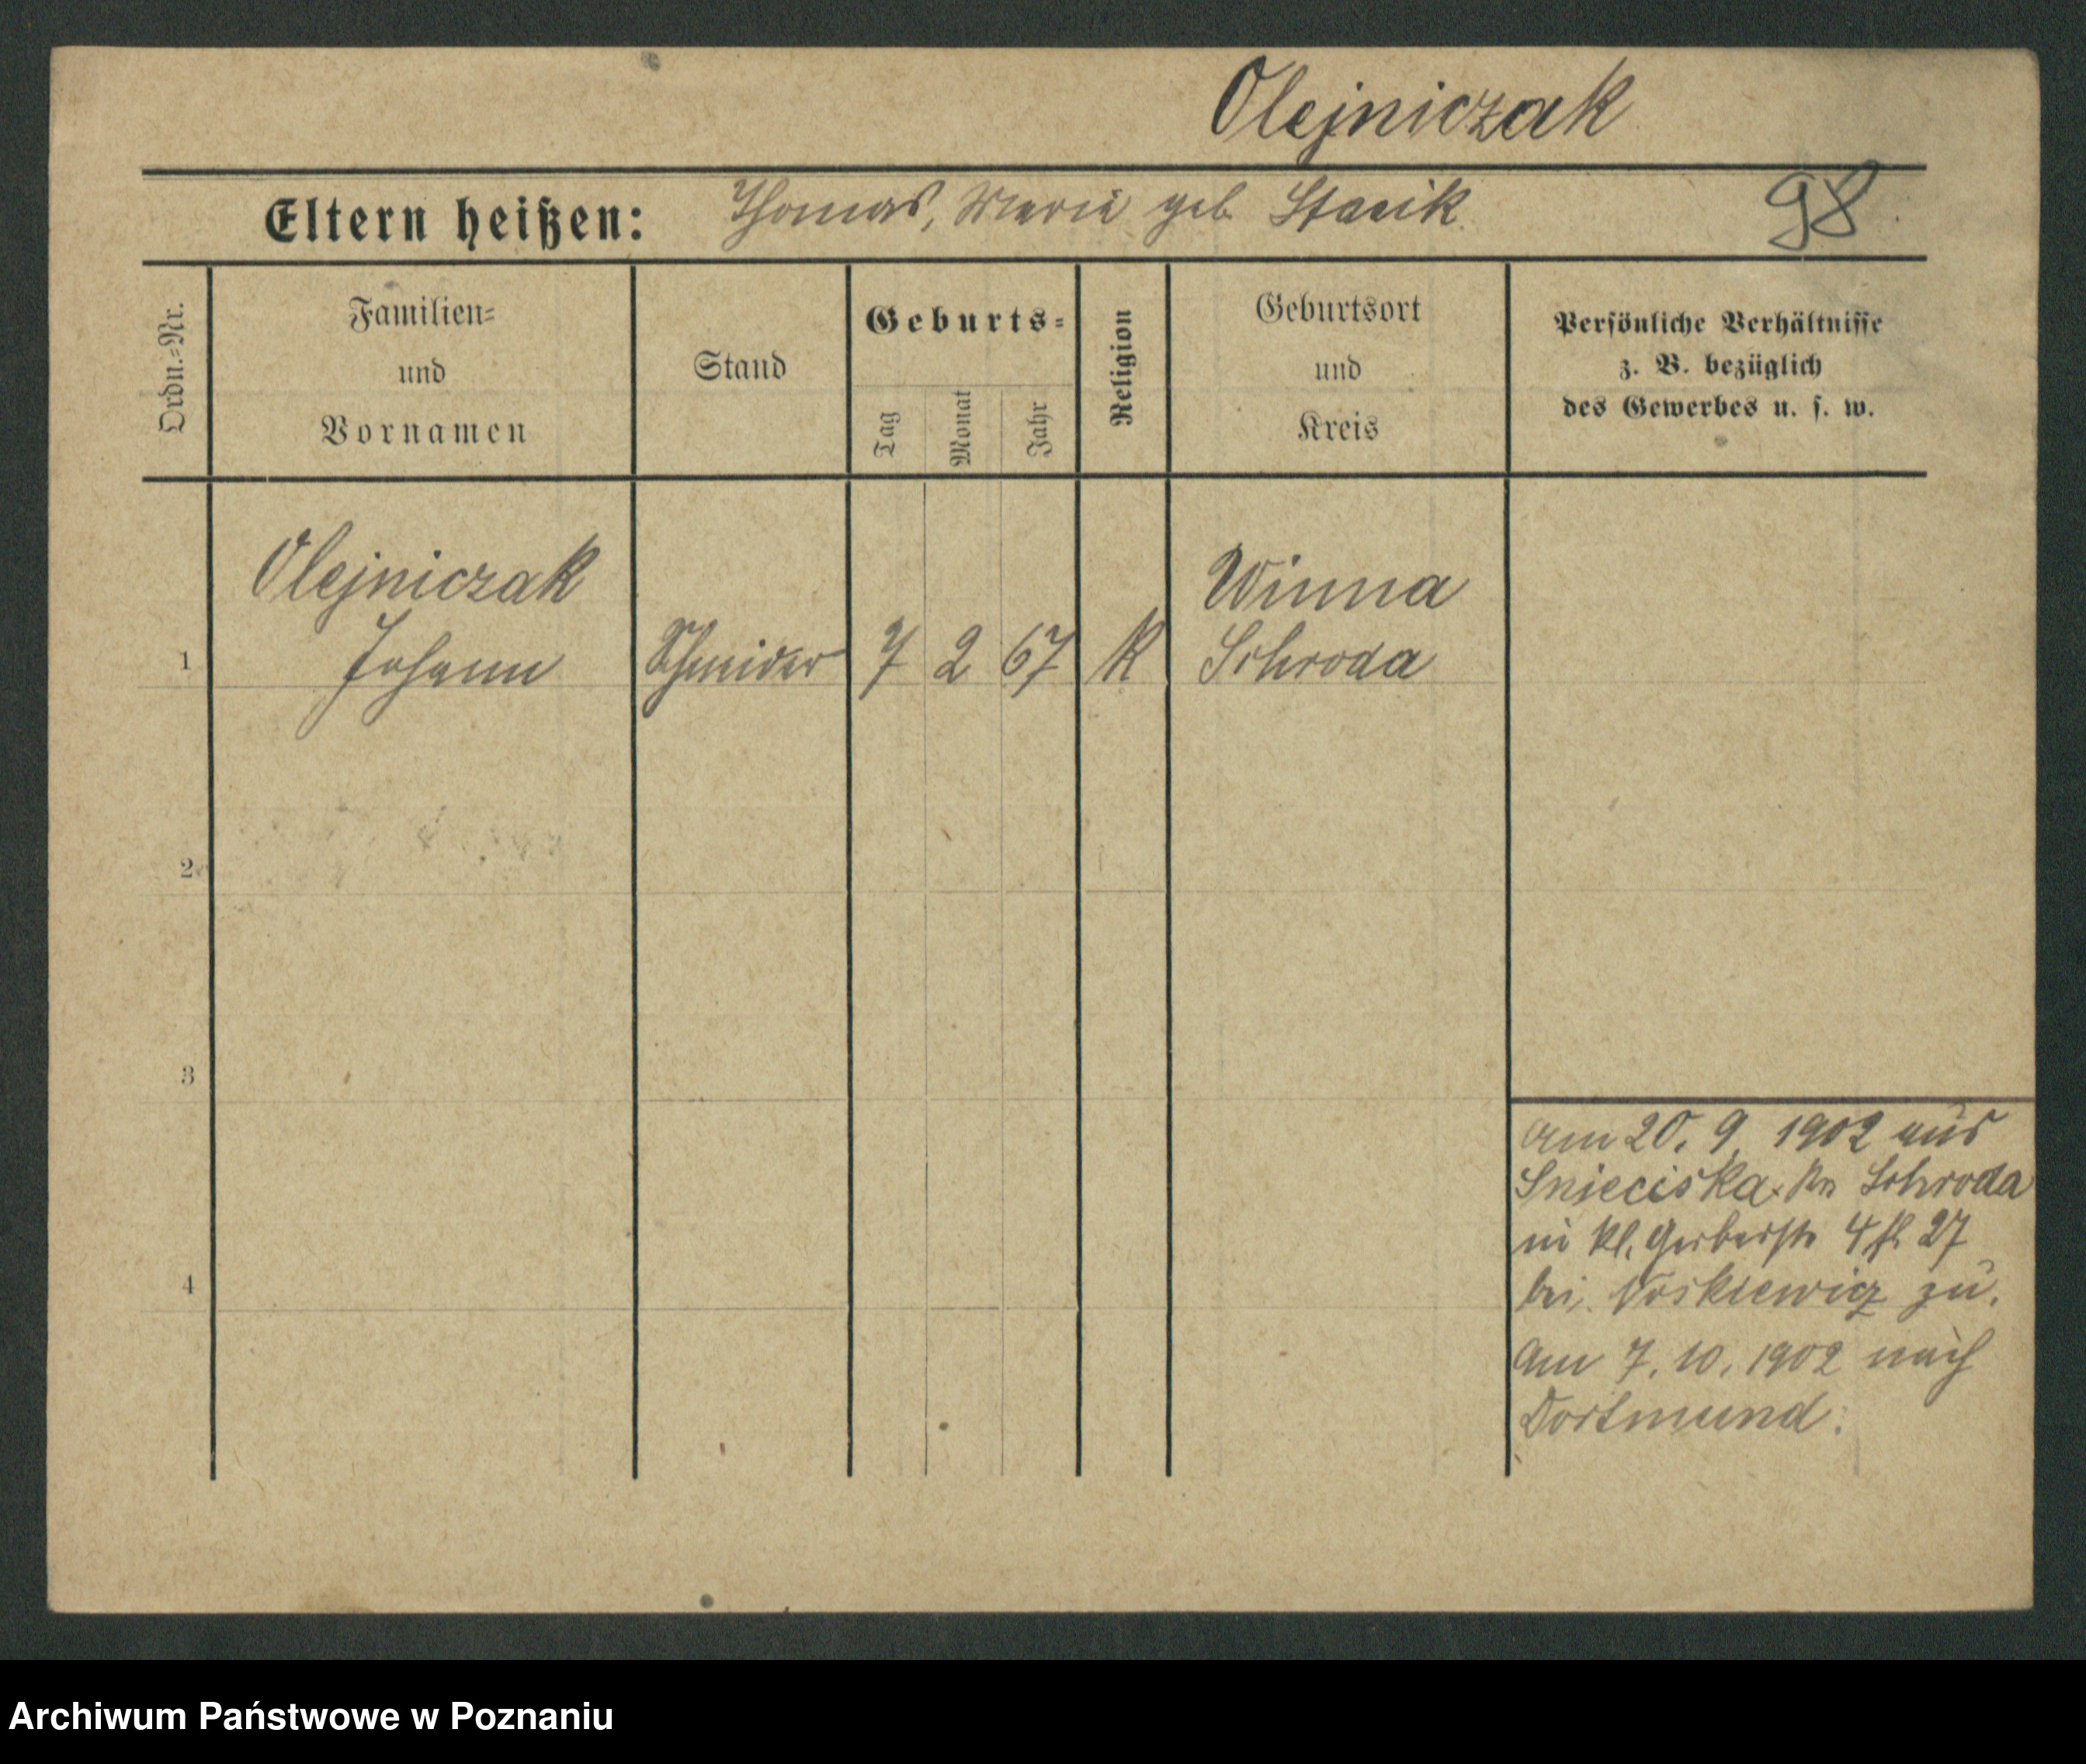 Olejniczak
Eltern heißen: Thomas, Marie geb. Stasik. 98
Ordn.=Nr.
Familien=
und
Vornamen
Stand
Geburts=
Tag
Monat
Jahr
Religion
Geburtsort
und
Kreis
Persönliche Verhältnisse
z. B. bezüglich
des Gewerbes u. s. w.
Olejniczak Winna
1 Johann Schneider 7 2 67 K Schroda
2
3
4
am 20. 9. 1902 aus
Snieciska Kr. Schroda
in kl. Gerberstr 4 27
bei zu.
Am 7. 10. 1902 nach
Dortmund.
Archiwum Państwowe w Poznaniu